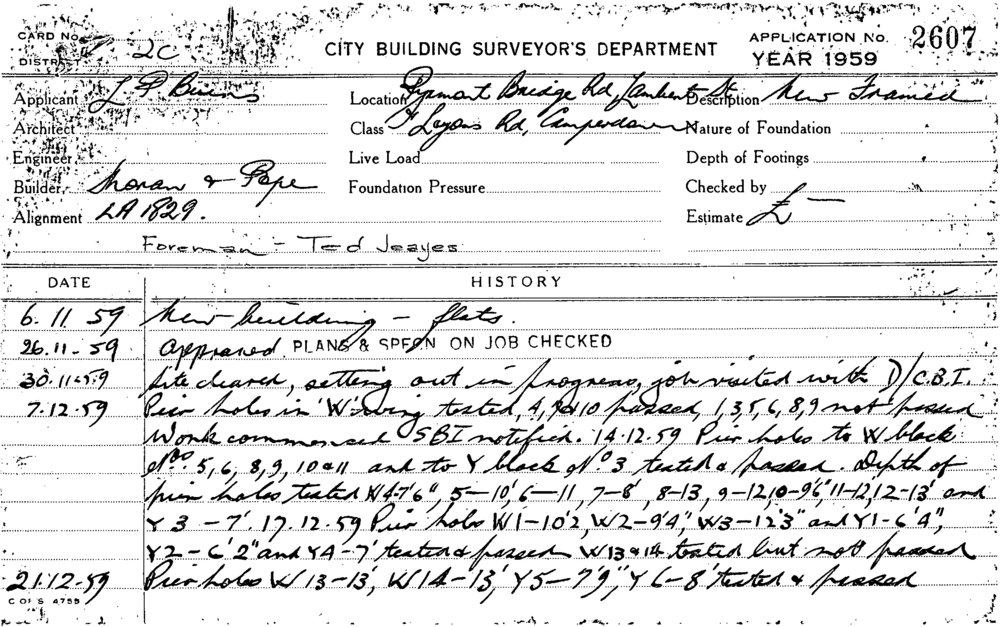 CARD No. CITY BUILDING SURVEYOR'S DEPARTMENT APPLICATION No. 2607
DISTRICT 2C YEAR 1959
Applicant L P Location Pyrmont Bridge Rd, Lambert St. Description New Framed
Architect Class Lyons Rd, Camperdown Nature of Foundation
Engineer Live Load Depth of Footings
Builder Moran & Pope Foundation Pressure Checked by
Alignment LA 1829. Estimate £ —
Foreman - Ted Jeayes
DATE HISTORY
6.11.59 New building - flats.
26.11.59 Approved PLANS & SPECN ON JOB CHECKED
30.11.59 Site cleared, setting out in progress, job visited with D/C.B.I.
7.12.59 Pier holes in 'W' wing tested, 4, & 10 passed, 1,3,5,6,8,9 not passed
Work commenced SBI notified. 14.12.59 Pier holes to W block
Nos. 5,6,8,9,10&11 and to Y block No 3 tested & passed. Depth of
pier holes tested W4-7'6", 5-10', 6-11, 7-8', 8-13, 9-12, 10-9'6", 11-12', 12-13' and
Y3 - 7'. 17.12.59 Pier holes W1-10'2, W2-9'4", W3-12'3" and Y1-6'4",
Y2-6'2" and Y4-7' tested & passed W13&14 tested but not passed
21.12.59 Pier holes W13-13', W14-13', Y5-7'9", Y6-8' tested & passed
C OF S 4755